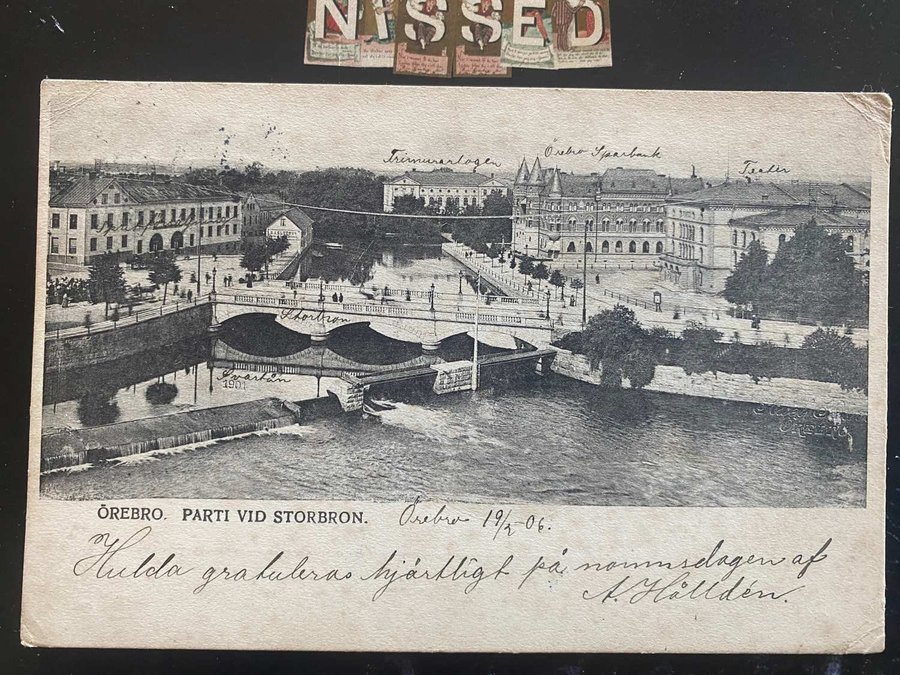 NISSED
Frimurarlogen
Örebro Sparbank
Teater
Storbron
Svartån
1901
ÖREBRO. PARTI VID STORBRON.
Örebro 19/2-06.
Hulda gratuleras hjärtligt på namnsdagen af
A. Hålldén.